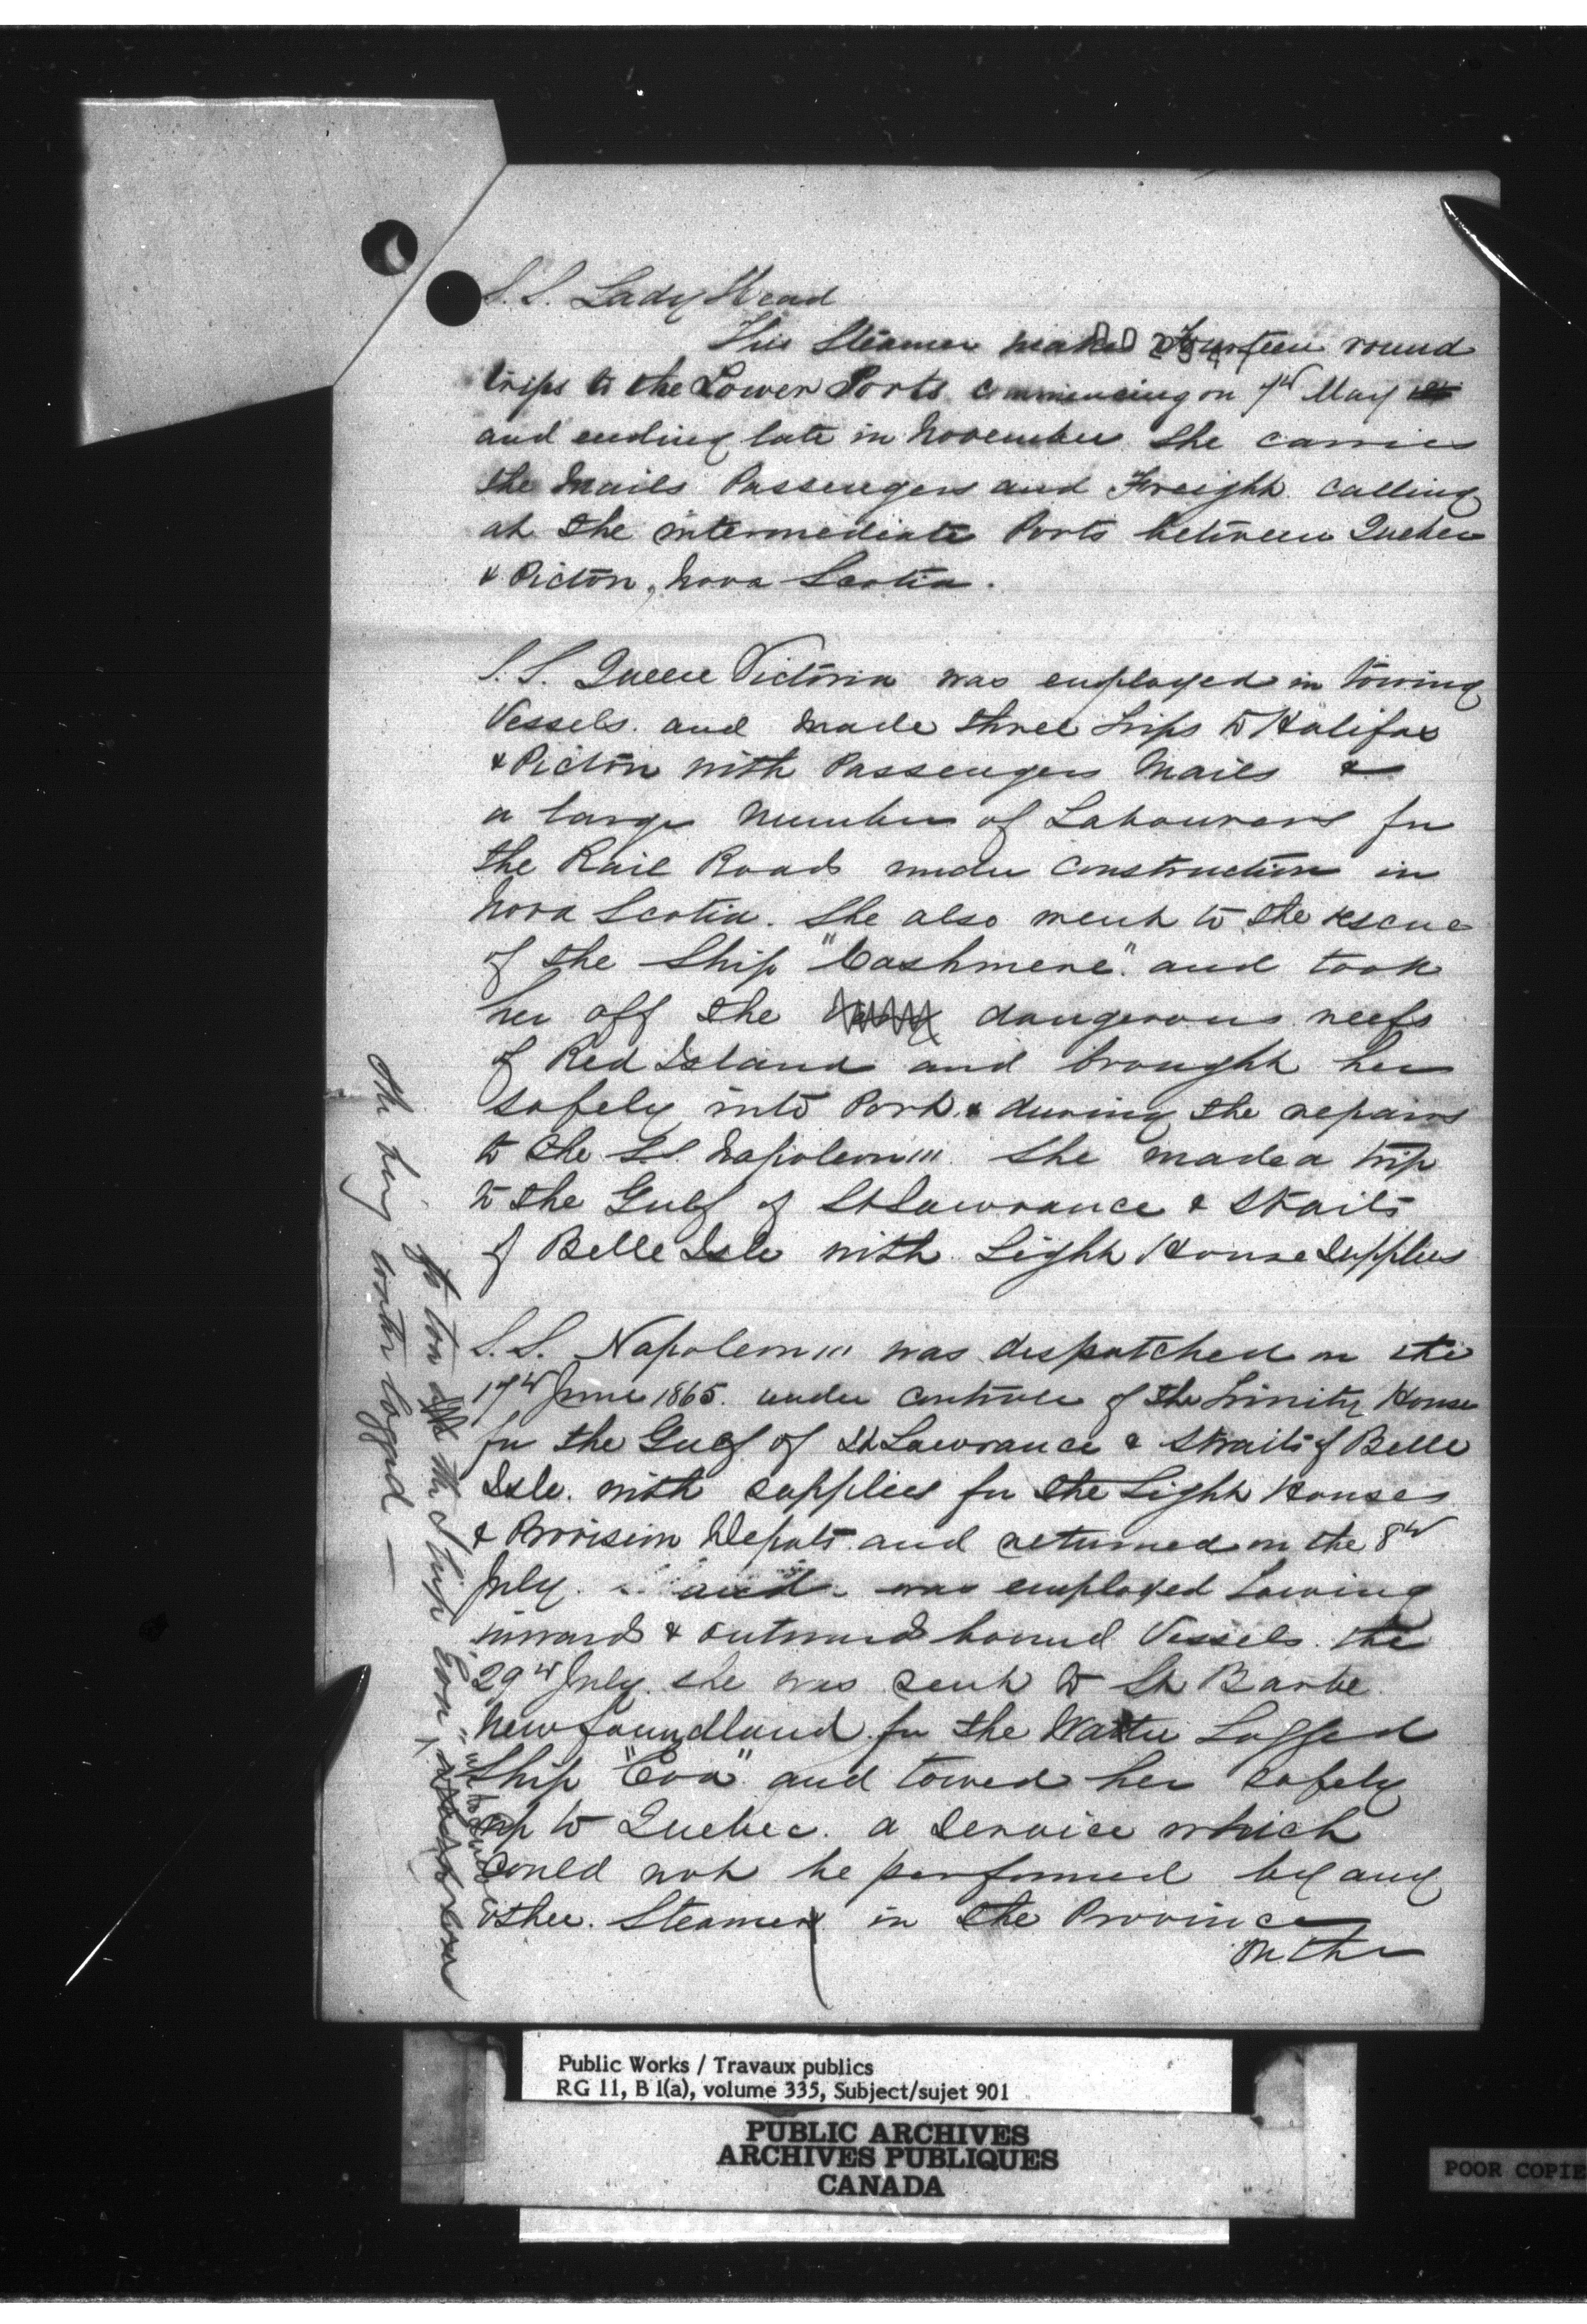 S.S. Lady Head
This Steamer makes Fourteen round
trips to the Lower Ports Commencing on 7th May
and ending late in November She carries
the Mails Passengers and Freight calling
at the intermediate Ports between Quebec
& Pictou, Nova Scotia.
S.S. Queen Victoria was employed in towing
Vessels. and made three trips to Halifax
& Pictou with Passengers Mails &
a large number of Labourers for
the Rail Roads under Construction in
Nova Scotia. She also went to the rescue
of the Ship "Cashmere" and took
her off the dangerous reefs
of Red Island and brought her
safely into Port & during the repairs
to the S.S. Napoleon III. She made a trip
to the Gulf of St Lawrance & Straits
of Belle Isle with Light House Supplies
S.S. Napoleon III was dispatched on the
17th June 1865. under controle of the Trinity House
for the Gulf of St Lawrance & Straits of Belle
Isle. with supplies for the Light Houses
& Provision Depots and returned on the 8th
July. and was employed Towing
inward & outward bound Vessels. the
29th July. she was sent to St Barbe
Newfoundland for the Water Logged
Ship "Eva" and towed her safely
up to Quebec. a Service which
could not be performed by any
other. Steamer in the Province
On the
to tow the Ship Eva
she being water logged —
Public Works / Travaux publics
RG 11, B 1(a), volume 335, Subject/sujet 901
PUBLIC ARCHIVES
ARCHIVES PUBLIQUES
CANADA
POOR COPIE